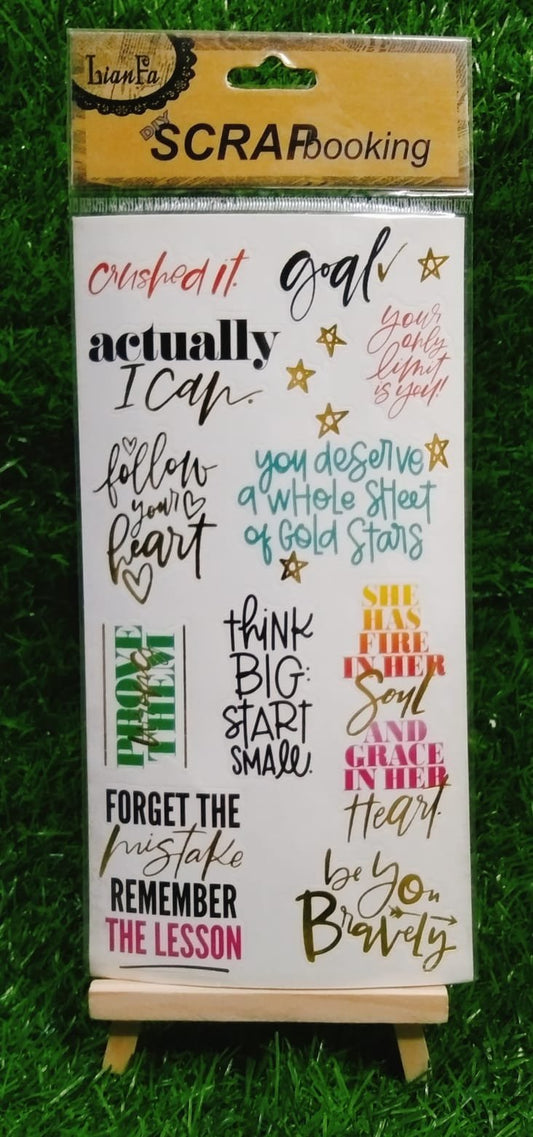 LianFa
DIY
SCRAPbooking
crushed it.
goal
actually
I can.
your
only
limit
is you!
follow
your
heart
you deserve
a whole sheet
of gold stars
PROVE
wrong
THEM
thINK
BIG:
START
SMALL.
SHE
HAS
FIRE
IN HER
Soul
AND
GRACE
IN HER
Heart.
FORGET THE
mistake
REMEMBER
THE LESSON
be you
Bravely